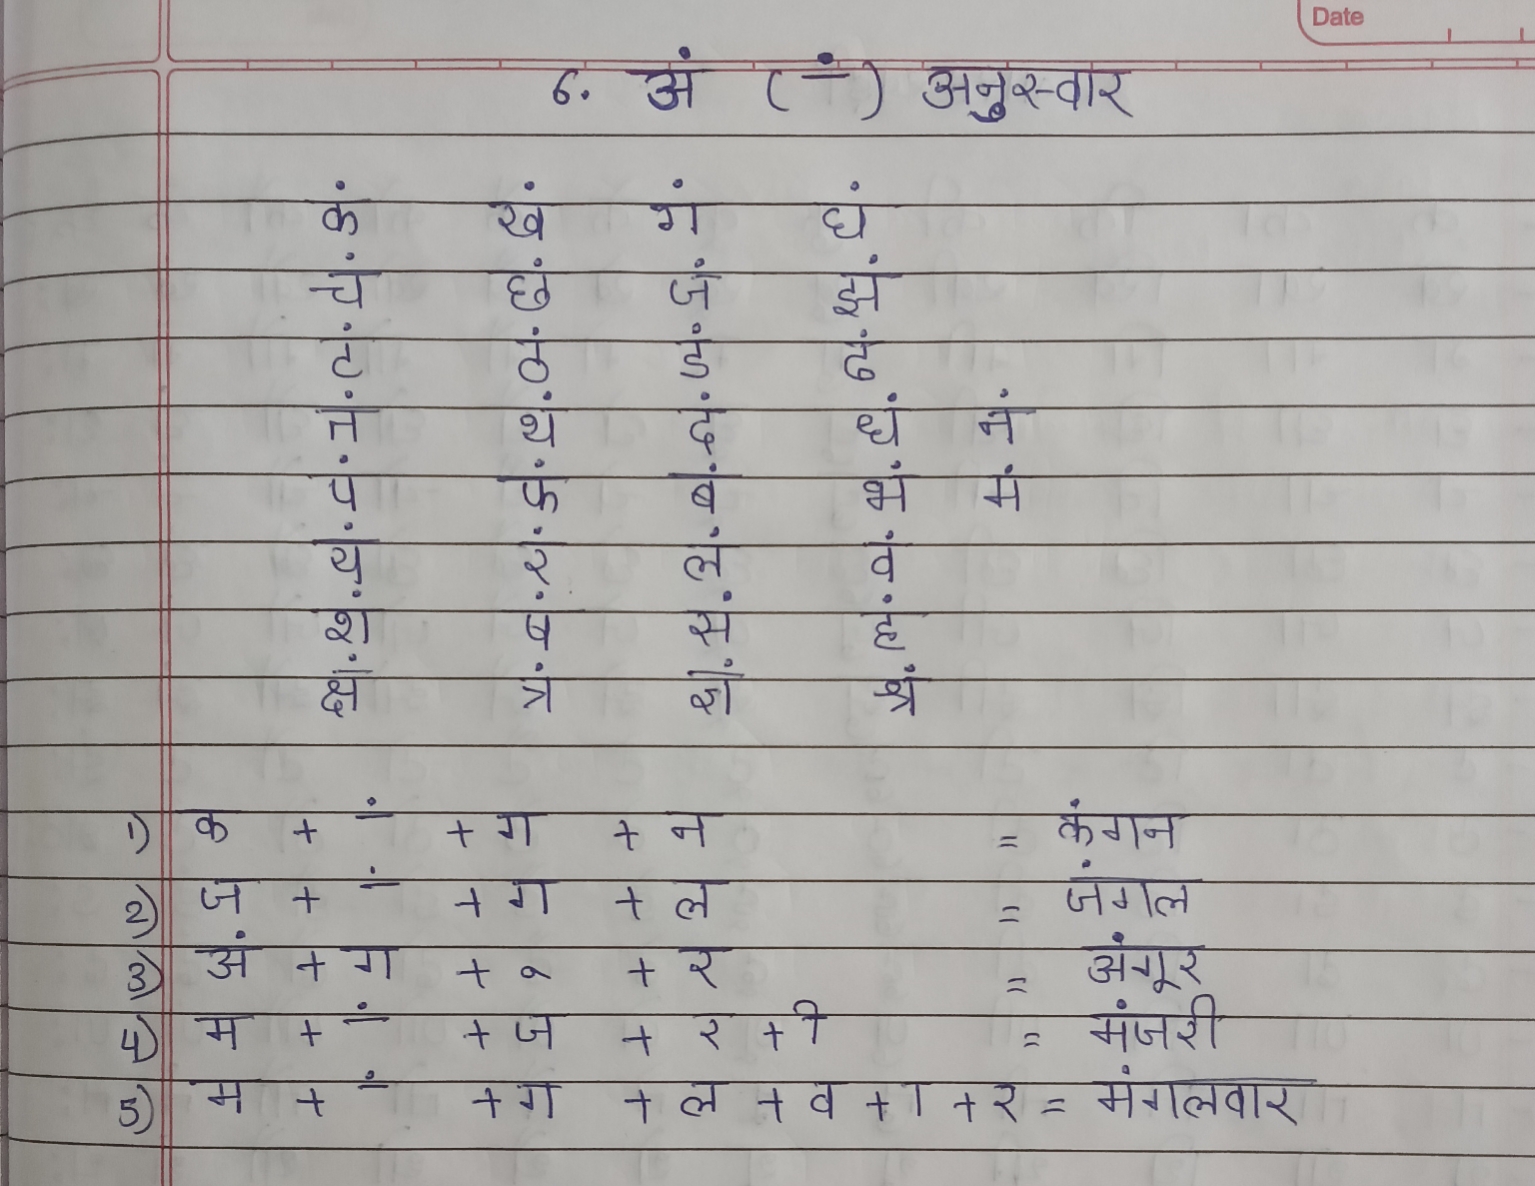 Date
6. अं ( ं ) अनुस्वार
कं खं गं घं
चं छं जं झं
टं ठं डं ढं
तं थं दं धं नं
पं फं बं भं मं
यं रं लं वं
शं षं सं हं
क्षं त्रं ज्ञं श्रं
1) क + ं + ग + न = कंगन
2) ज + ं + ग + ल = जंगल
3) अं + ग + ू + र = अंगूर
4) म + ं + ज + र + ी = मंजरी
5) म + ं + ग + ल + व + ा + र = मंगलवार